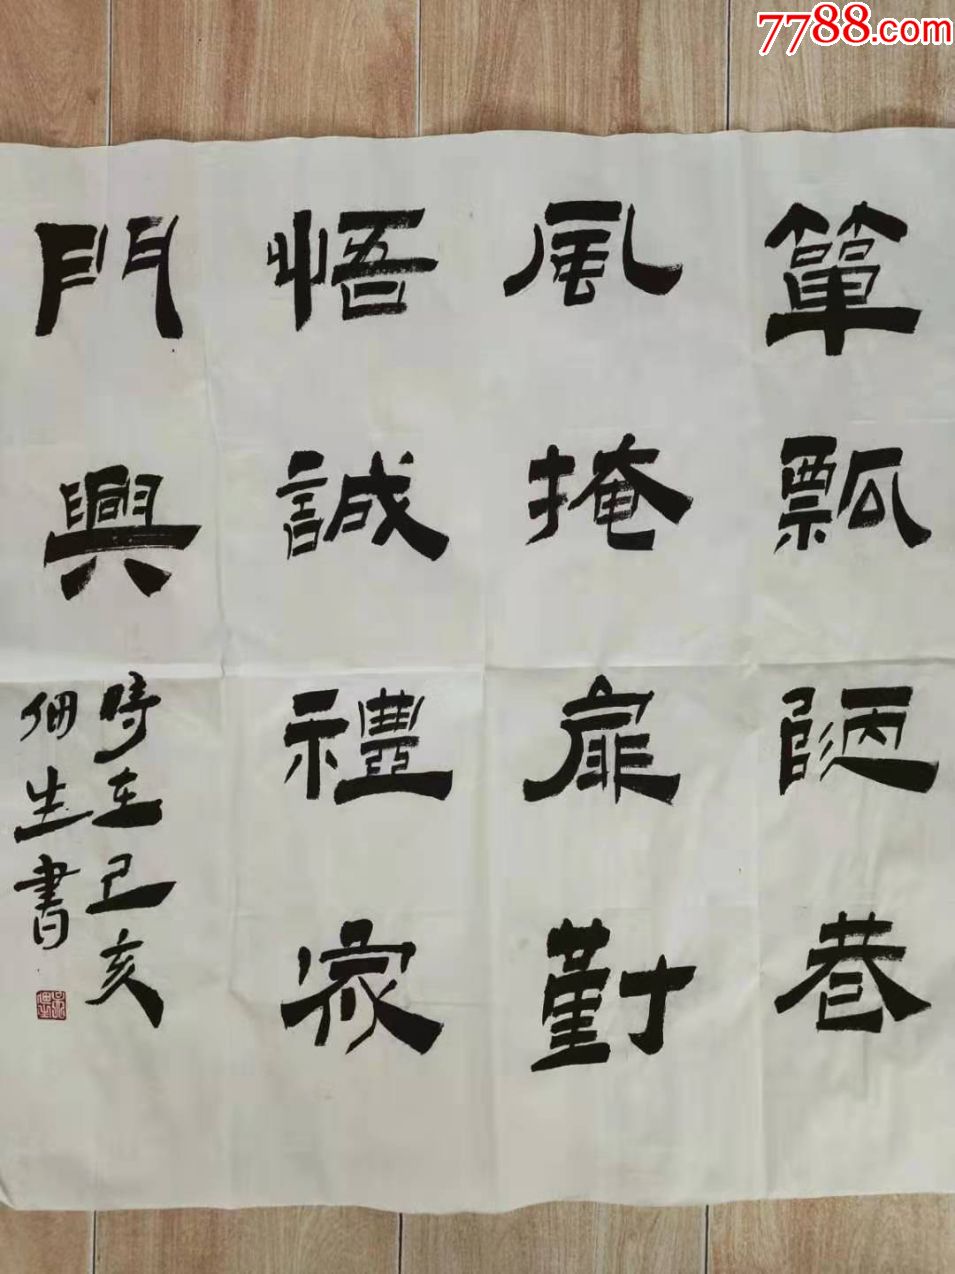 7788.com
簞瓢陋巷
風掩扉勤
悟誠禮家
門興
時在己亥
佃生書